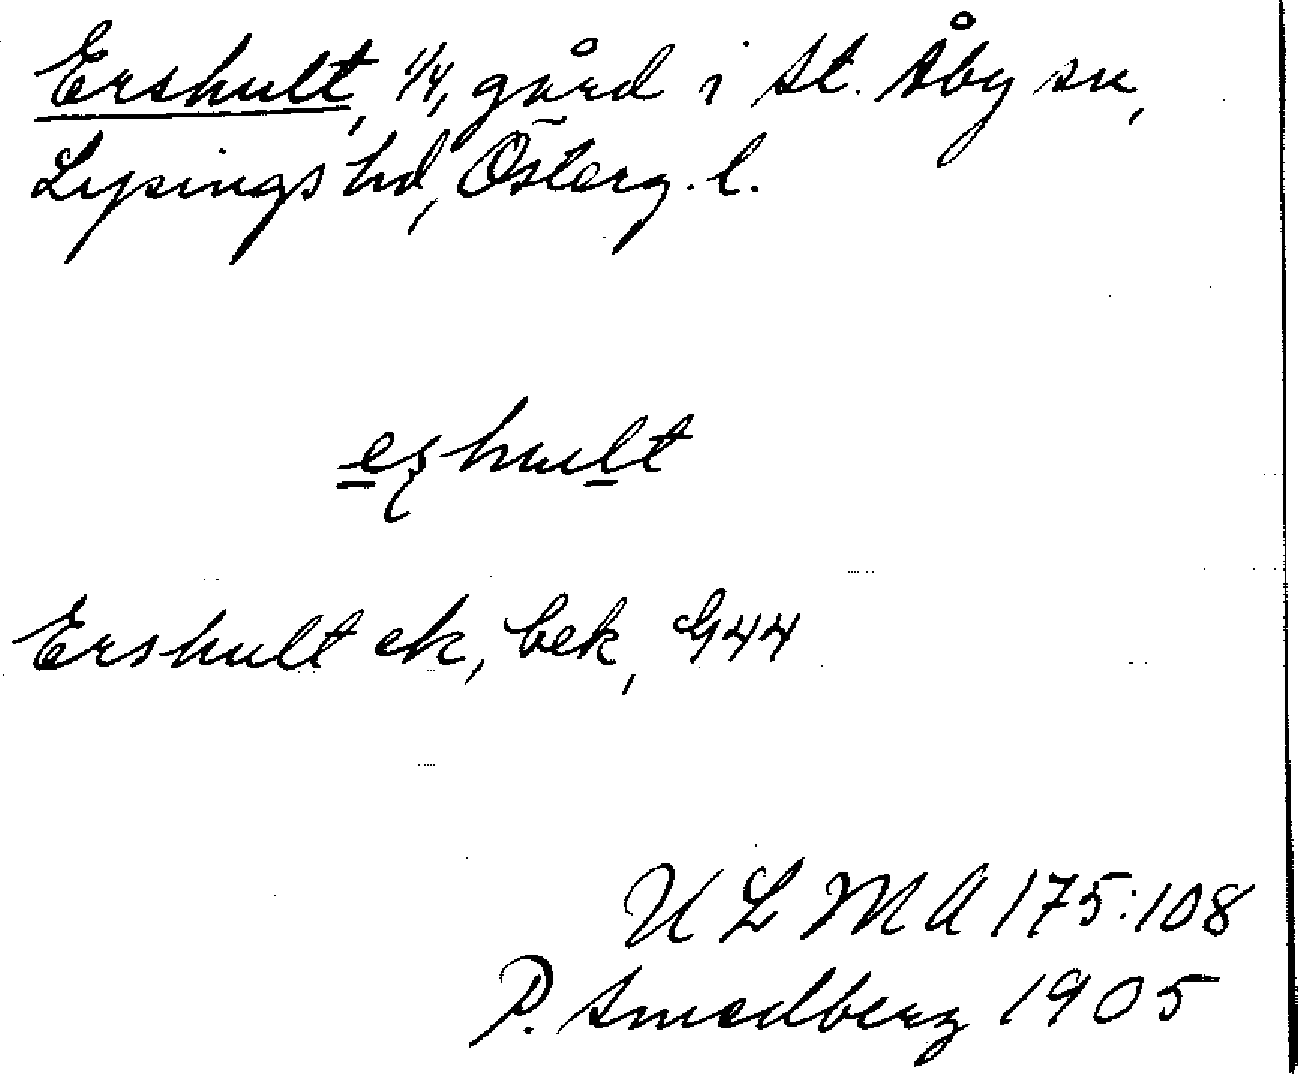 Ershult, 1/4, gård i St. Åby sn,
Lysings hd, Österg. l.
eʂhult
Ershult ek, bek, G44
ULMA 175:108
P. Smedberg 1905